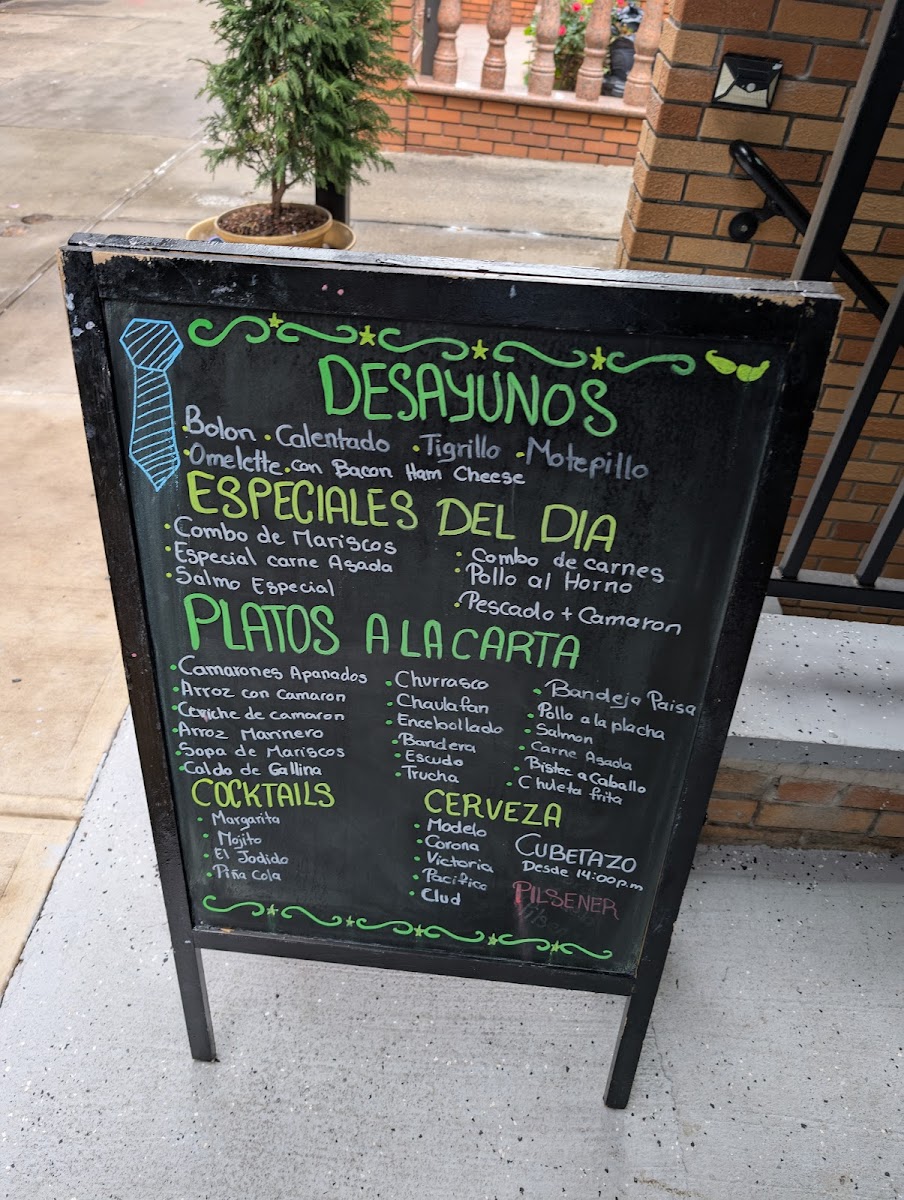 DESAYUNOS
• Bolon • Calentado • Tigrillo • Motepillo
• Omelette • con Bacon Ham Cheese
ESPECIALES DEL DIA
• Combo de Mariscos
• Especial carne Asada
• Salmo Especial
• Combo de carnes
• Pollo al Horno
• Pescado + Camaron
PLATOS A LA CARTA
• Camarones Apanados
• Arroz con camaron
• Ceviche de camaron
• Arroz Marinero
• Sopa de Mariscos
• Caldo de Gallina
• Churrasco
• Chaulafan
• Encebollado
• Bandera
• Escudo
• Trucha
• Bandeja Paisa
• Pollo a la placha
• Salmon
• Carne Asada
• Bistec a Caballo
• Chuleta frita
COCKTAILS
• Margarita
• Mojito
• El Jodido
• Piña Cola
CERVEZA
• Modelo
• Corona
• Victoria
• Pacifica
• Clud
CUBETAZO
Desde 14:00p.m
PILSENER